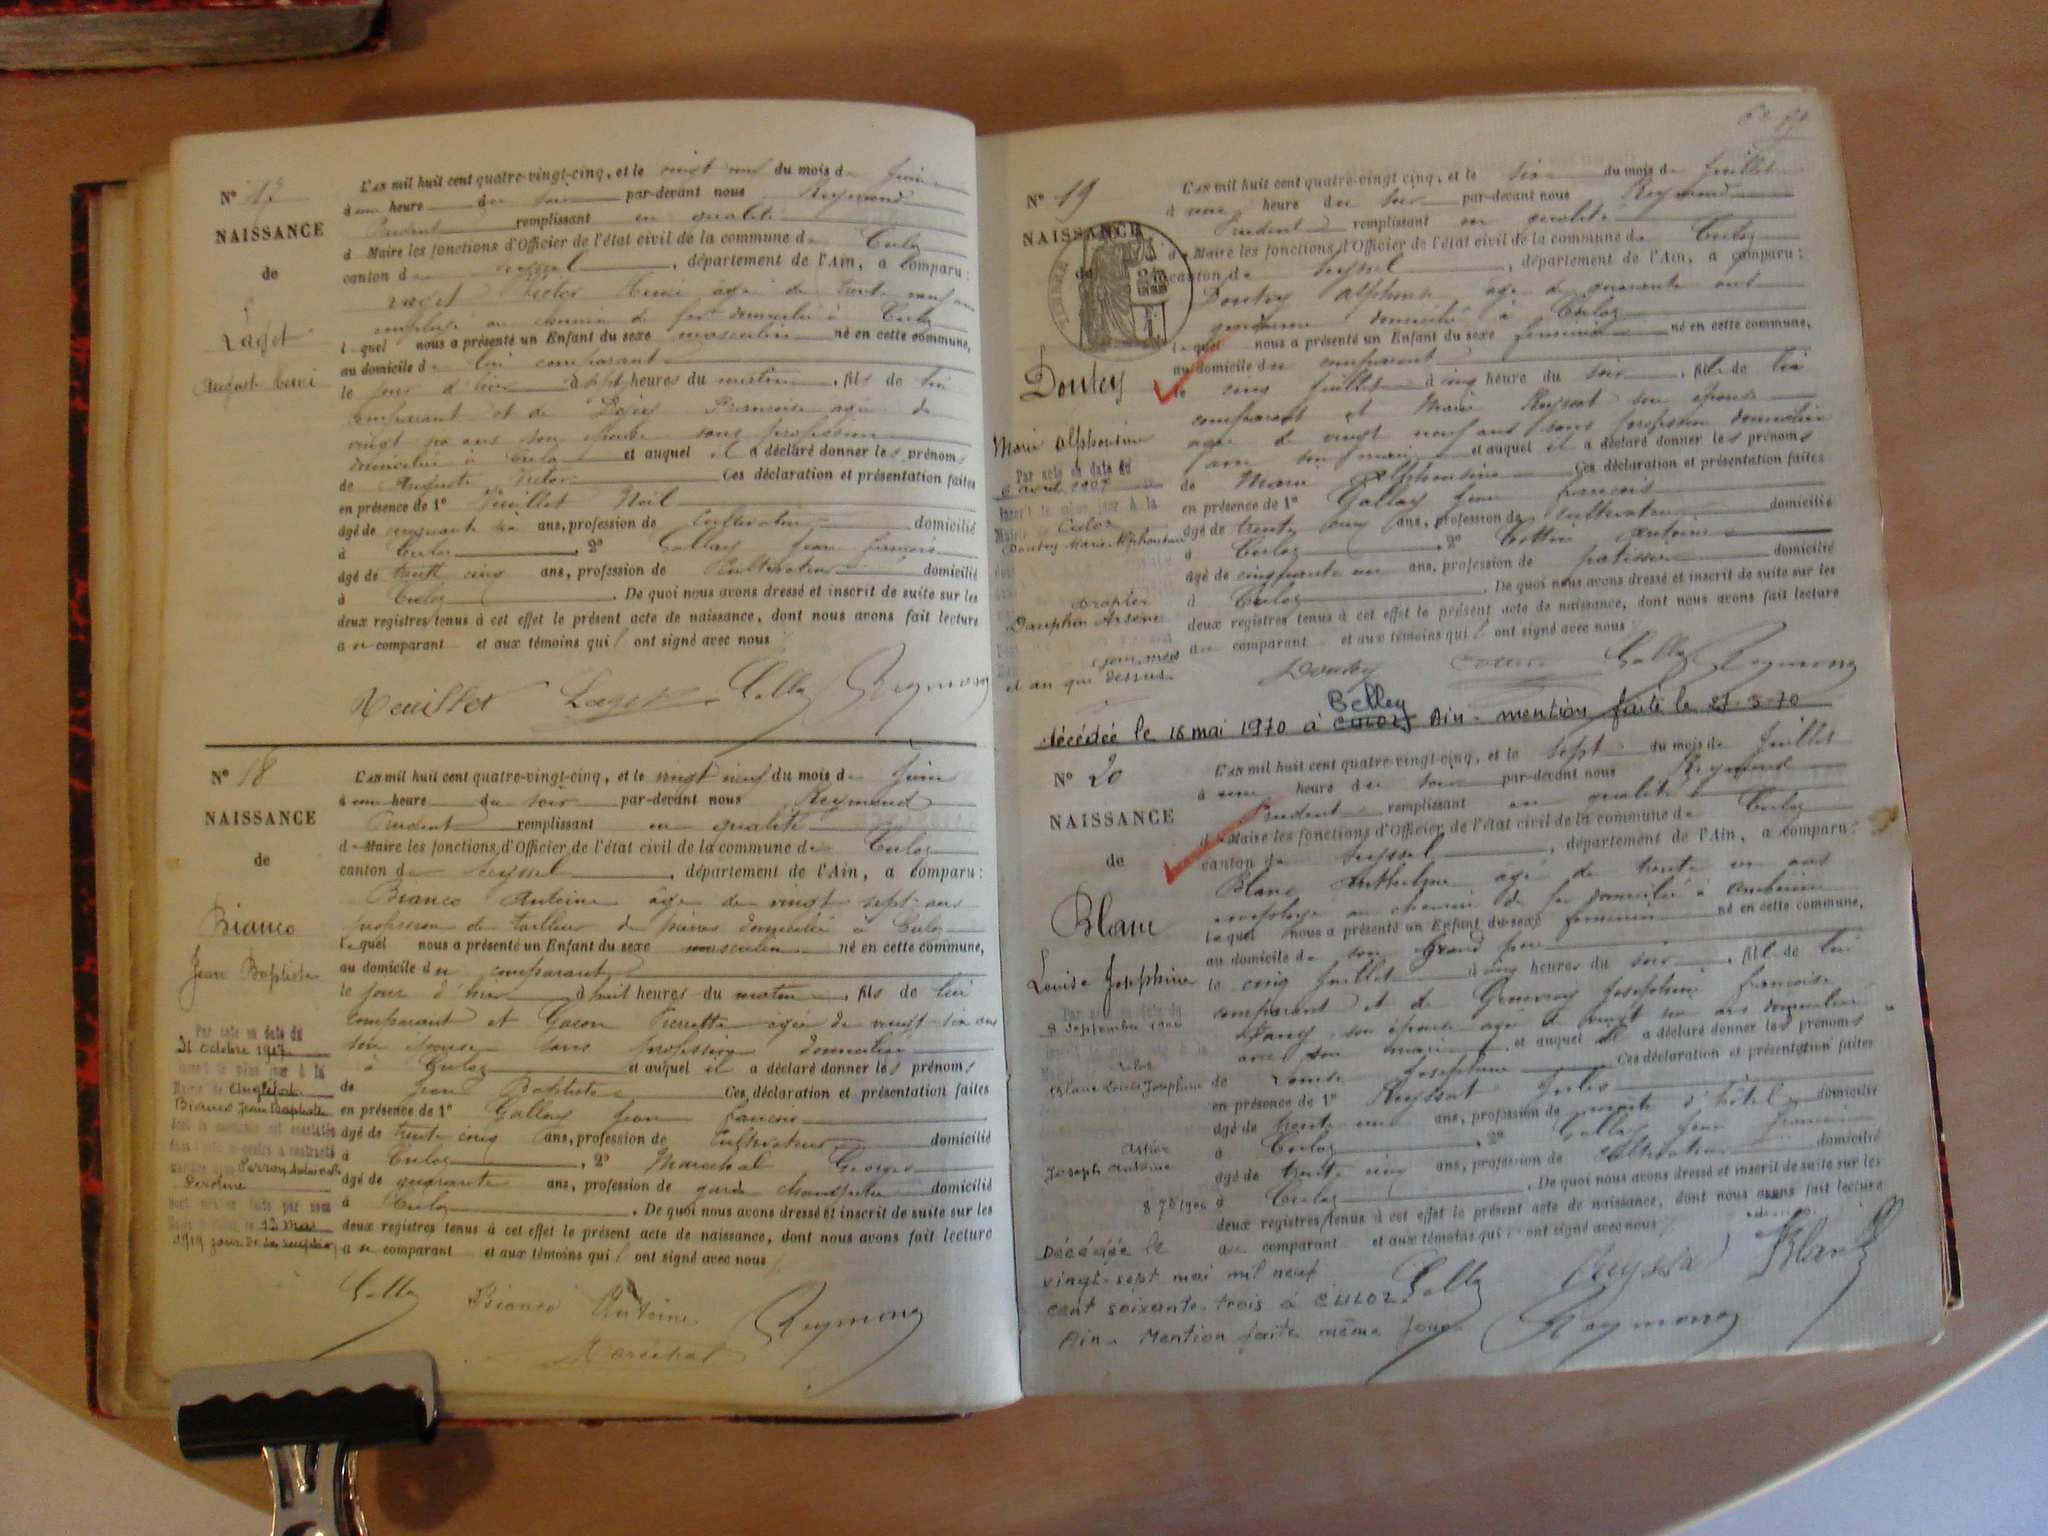 N° 17
NAISSANCE
de
Laget
August Henri
L'AN mil huit cent quatre-vingt-cinq, et le vingt neuf du mois de Juin
à une heure du soir par-devant nous Reymond
Prudent remplissant en qualité
d Maire les fonctions d'Officier de l'état civil de la commune de Culoz
canton de Seyssel, département de l'Ain, a comparu:
Laget Victor Henri âgé de trente neuf ans
employé au chemin de fer domicilié à Culoz
lequel nous a présenté un Enfant du sexe masculin né en cette commune,
au domicile de lui comparant
le jour d'hier à sept heures du matin, fils de lui
comparant et de Françoise agée de
vingt ans son épouse sans profession
domiciliée à Culoz et auquel il a déclaré donner les prénoms
de Auguste Ces déclaration et présentation faites
en présence de 1° Noël
âgé de cinquante ans, profession de cultivateur domicilié
à Culoz, 2° Gallay Jean françois
âgé de trente cinq ans, profession de Cultivateur domicilié
à Culoz. De quoi nous avons dressé et inscrit de suite sur les
deux registres tenus à cet effet le présent acte de naissance, dont nous avons fait lecture
au comparant et aux témoins qui ont signé avec nous
Laget Gallay Reymond
N° 18
NAISSANCE
de
Bianco
Jean Baptiste
Par acte en date du
31 octobre 1917
Mairie de Anglefort
Bianco Jean Baptiste
12 mai
1919
L'AN mil huit cent quatre-vingt-cinq, et le vingt neuf du mois de Juin
à une heure du soir par-devant nous Reymond
Prudent remplissant en qualité
de Maire les fonctions d'Officier de l'état civil de la commune de Culoz
canton de Seyssel, département de l'Ain, a comparu:
Bianco Antoine âgé de vingt sept ans
profession de tailleur de pierres domicilié à Culoz
lequel nous a présenté un Enfant du sexe masculin né en cette commune,
au domicile du comparant
le jour d'hier à huit heures du matin, fils de lui
comparant et Gacon Pierrette agée de vingt six ans
son épouse sans profession domiciliée
à Culoz et auquel il a déclaré donner les prénoms
de Jean Baptiste Ces déclaration et présentation faites
en présence de 1° Gallay Jean francois
âgé de trente cinq ans, profession de Cultivateur domicilié
à Culoz, 2° Maréchal Georges
âgé de quarante ans, profession de garde champêtre domicilié
à Culoz. De quoi nous avons dressé et inscrit de suite sur les
deux registres tenus à cet effet le présent acte de naissance, dont nous avons fait lecture
au comparant et aux témoins qui ont signé avec nous
Gallay Bianco Antoine Reymond
Maréchal
N° 19
NAISSANCE
Doutey
Marie Alphonsine
Par acte en date du
6 avril 1907
inscrit le même jour à la
Mairie de Culoz
Doutey Marie Alphonsine
Dauphin Arsène
jour, mois
et an que dessus
L'AN mil huit cent quatre-vingt cinq, et le six du mois de Juillet
à une heure du soir par-devant nous Reymond
Prudent remplissant en qualité
de Maire les fonctions d'Officier de l'état civil de la commune de Culoz
canton de Seyssel, département de l'Ain, a comparu:
Doutey Alphonse age de quarante ans
domicilié à Culoz
lequel nous a présenté un Enfant du sexe féminin né en cette commune,
au domicile du comparant
le juillet à cinq heure du soir, fille de lui
comparant et Marie Ruyssat son épouse
agée de vingt neuf ans sans profession domiciliée
avec son mari et auquel il a déclaré donner les prénoms
de Marie Alphonsine Ces déclaration et présentation faites
en présence de 1° Gallay Jean francois
âgé de trente cinq ans, profession de cultivateur domicilié
à Culoz, 2° Cottin Antoine
âgé de cinquante un ans, profession de patissier domicilié
à Culoz. De quoi nous avons dressé et inscrit de suite sur les
deux registres tenus à cet effet le présent acte de naissance, dont nous avons fait lecture
au comparant et aux témoins qui ont signé avec nous
Doutey Gallay Reymond
Belley
décédée le 16 mai 1970 à Culoz Ain - mention faite le 21-5-70
N° 20
NAISSANCE
de
Blanc
Louise Joséphine
8 septembre 1906
Culoz
Blanc Louise Joséphine
Astier
Joseph Antoine
8 7bre 1906
Décédée le
vingt-sept mai mil neuf
cent soixante-trois à CULOZ
Ain. Mention faite même jour
L'AN mil huit cent quatre-vingt-cinq, et le sept du mois de Juillet
à une heure du soir par-devant nous Reymond
Prudent remplissant en qualité
de Maire les fonctions d'Officier de l'état civil de la commune de Culoz
canton de Seyssel, département de l'Ain, a comparu:
Blanc Anthelme âgé de trente un ans
employé au chemin de fer domicilié à Ambérieu
lequel nous a présenté un Enfant du sexe féminin né en cette commune,
au domicile de son Grand père
le cinq Juillet à cinq heures du soir, fille de lui
comparant et de Joséphine françoise
son épouse agée de vingt six ans domiciliée
avec son mari et auquel il a déclaré donner les prénoms
de Louise Joséphine Ces déclaration et présentation faites
en présence de 1° Ruyssat Jules
âgé de trente ans, profession de maître d'hôtel domicilié
à Culoz, 2° Gallay Jean francois
âgé de trente cinq ans, profession de Cultivateur domicilié
à Culoz. De quoi nous avons dressé et inscrit de suite sur les
deux registres tenus à cet effet le présent acte de naissance, dont nous avons fait lecture
au comparant et aux témoins qui ont signé avec nous
Gallay Ruyssat Blanc
Reymond